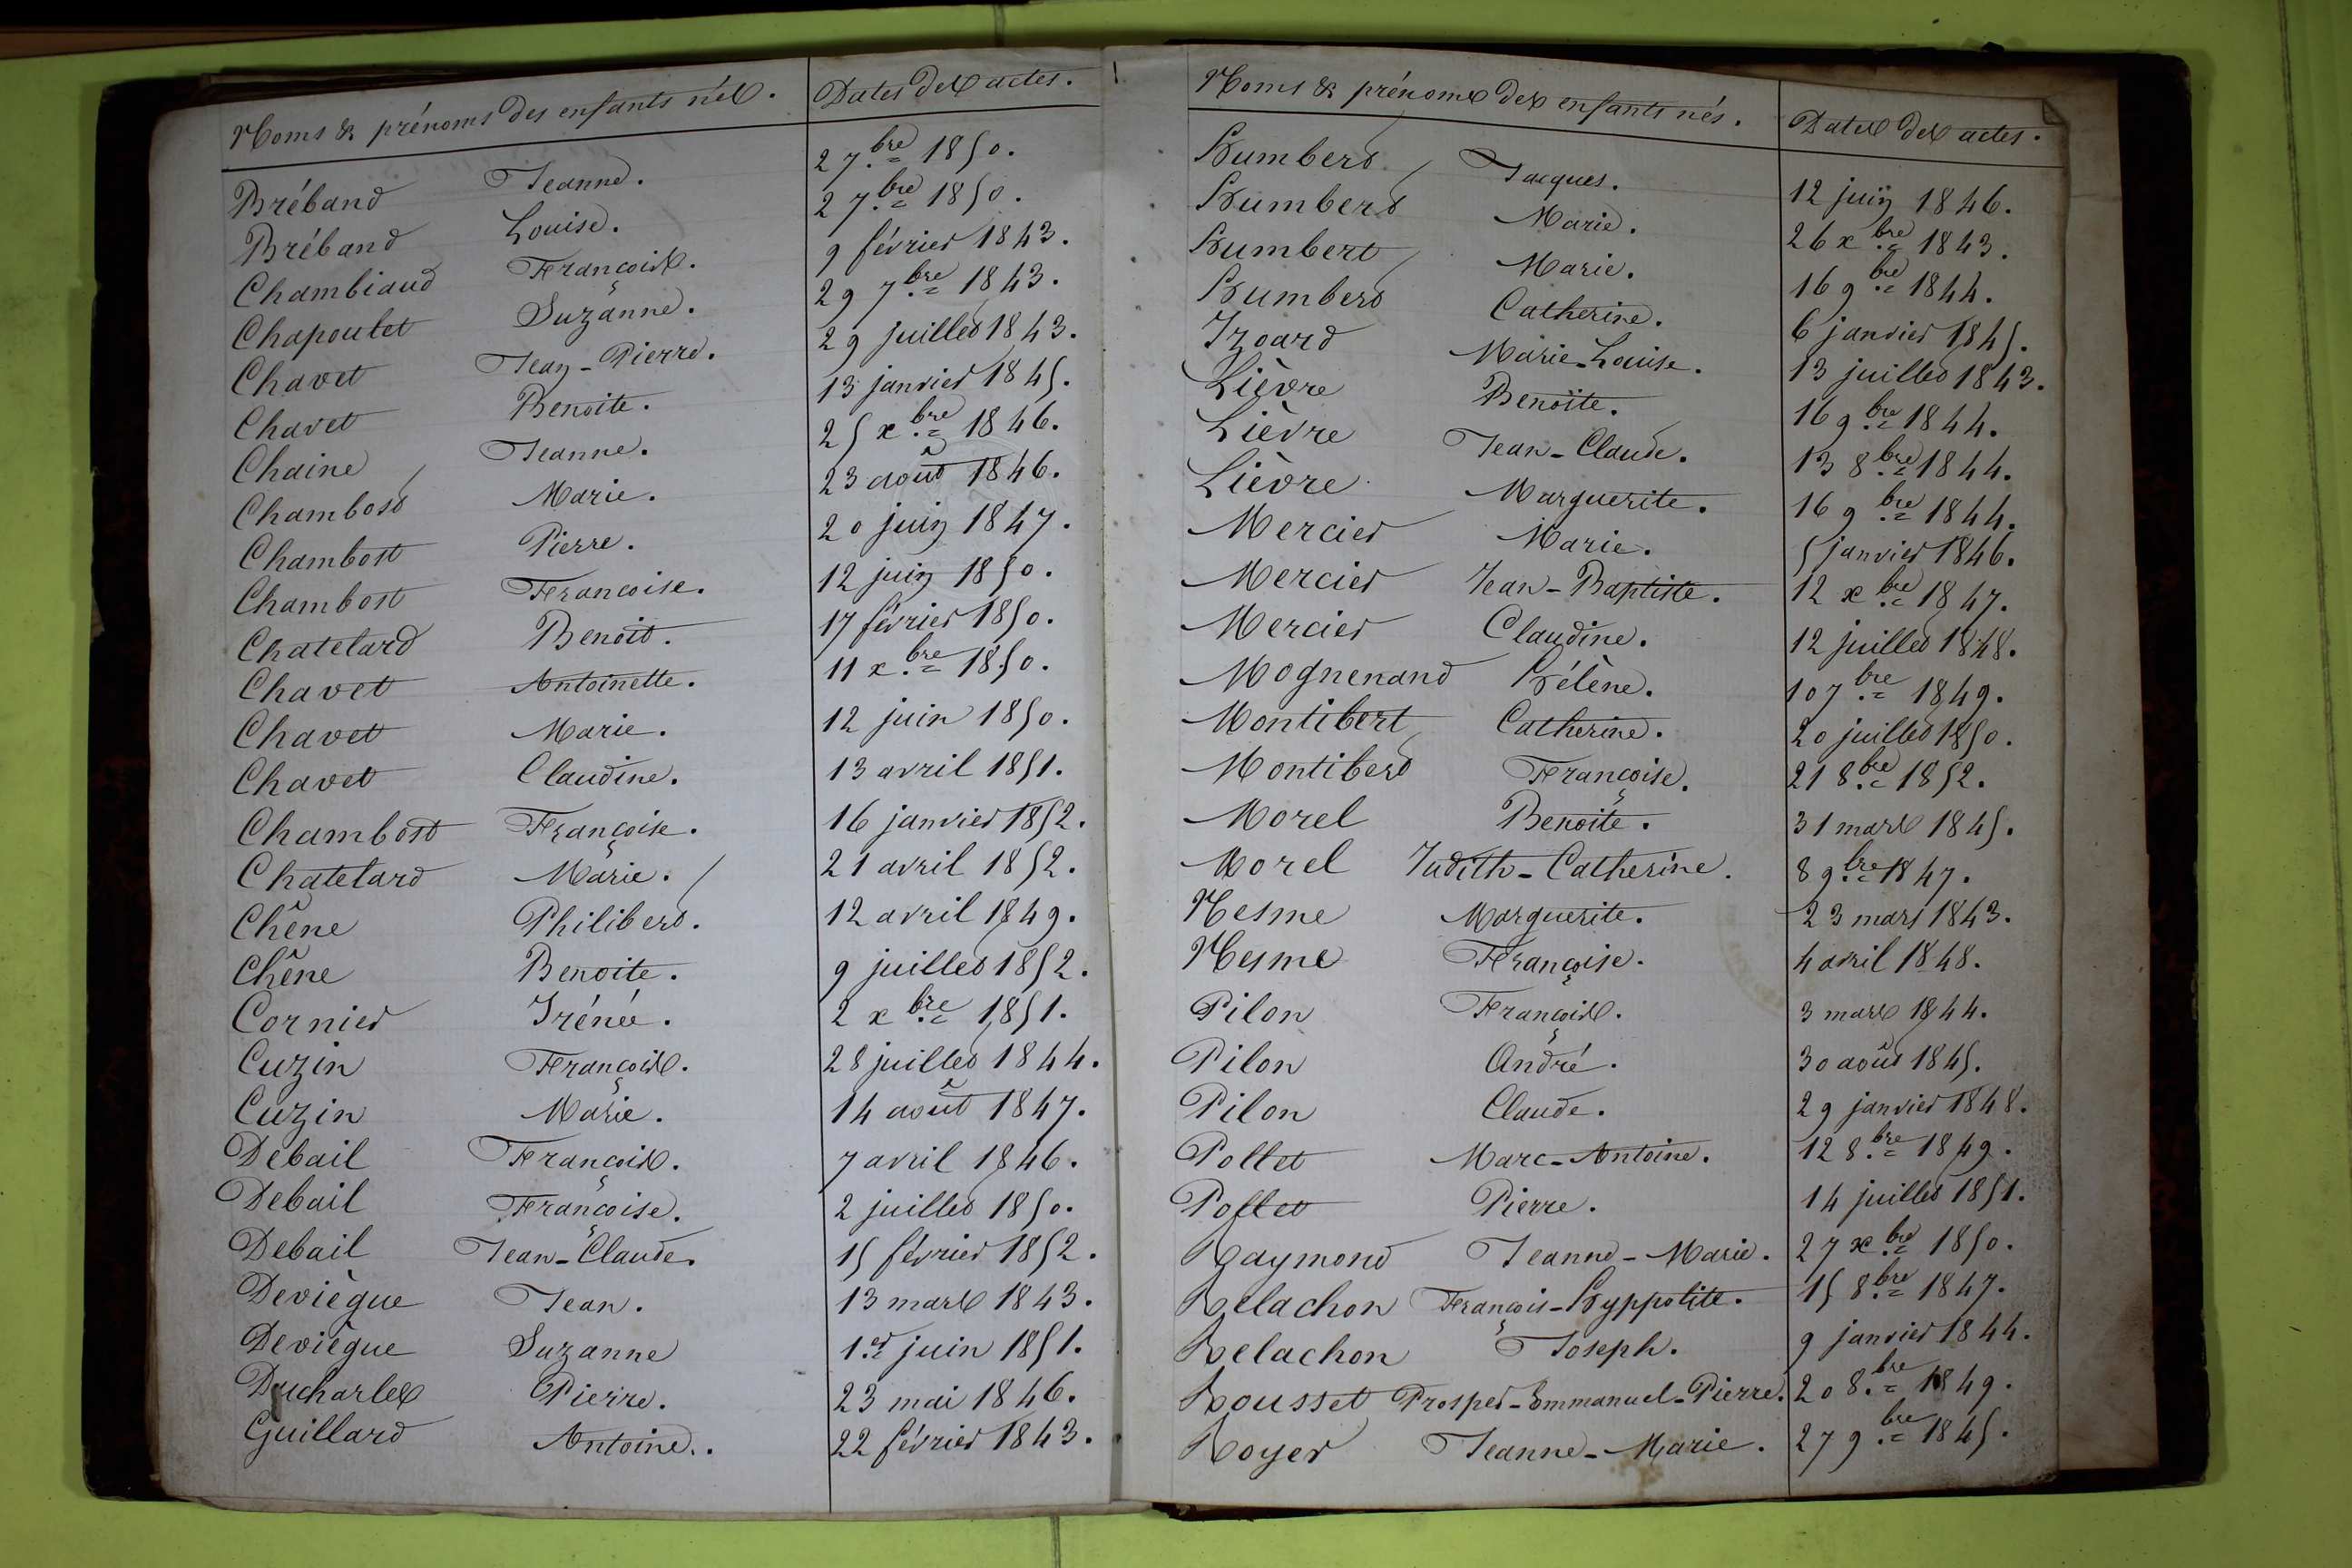 Noms & prénoms des enfants nés. Dates des actes.
Bréband Jeanne. 2 7.bre 1850.
Bréband Louise. 2 7.bre 1850.
Chambiaud François. 9 février 1843.
Chapoutet Suzanne. 29 7.bre 1843.
Chavet Jean-Pierre. 29 juillet 1843.
Chavet Benoite. 13 janvier 1845.
Chaine Jeanne. 25 x.bre 1846.
Chambost Marie. 23 août 1846.
Chambost Pierre. 20 juin 1847.
Chambost Francoise. 12 juin 1850.
Chatelard Benoit. 17 février 1850.
Chavet Antoinette. 11 x.bre 1850.
Chavet Marie. 12 juin 1850.
Chavet Claudine. 13 avril 1851.
Chambost Françoise. 16 janvier 1852.
Chatelard Marie. 21 avril 1852.
Chêne Philibert. 12 avril 1849.
Chêne Benoite. 9 juillet 1852.
Cornier Irénée. 2 x.bre 1851.
Cuzin François. 28 juillet 1844.
Cuzin Marie. 14 août 1847.
Debail François. 7 avril 1846.
Debail Françoise. 2 juillet 1850.
Debail Jean-Claude. 15 février 1852.
Deviègue Jean. 13 mars 1843.
Deviègue Suzanne 1.er juin 1851.
Ducharles Pierre. 23 mai 1846.
Guillard Antoine. 22 février 1843.
Noms & prénoms des enfants nés. Dates des actes.
Humbert Jacques. 12 juin 1846.
Humbert Marie. 26 x.bre 1843.
Humbert Marie. 16 9.bre 1844.
Humbert Catherine. 6 janvier 1845.
Izoard Marie-Louise. 13 juillet 1843.
Lièvre Benoite. 16 9.bre 1844.
Lièvre Jean-Claude. 13 8.bre 1844.
Lièvre Marguerite. 16 9.bre 1844.
Mercier Marie. 5 janvier 1846.
Mercier Jean-Baptiste. 12 x.bre 1847.
Mercier Claudine. 12 juillet 1848.
Mognenand Hélène. 10 7.bre 1849.
Montibert Catherine. 20 juillet 1850.
Montibert Françoise. 21 8.bre 1852.
Morel Benoite. 31 mars 1845.
Morel Judith-Catherine. 8 9.bre 1847.
Nesme Marguerite. 23 mars 1843.
Nesme Françoise. 4 avril 1848.
Pilon François. 3 mars 1844.
Pilon André. 30 août 1845.
Pilon Claude. 29 janvier 1848.
Pollet Marc-Antoine. 12 8.bre 1849.
Pollet Pierre. 14 juillet 1851.
Raymond Jeanne-Marie. 27 x.bre 1850.
Relachon François-Hyppolite. 15 8.bre 1847.
Relachon Joseph. 9 janvier 1844.
Rousset Prosper-Emmanuel-Pierre. 20 8.bre 1849.
Royer Jeanne-Marie. 27 9.bre 1845.